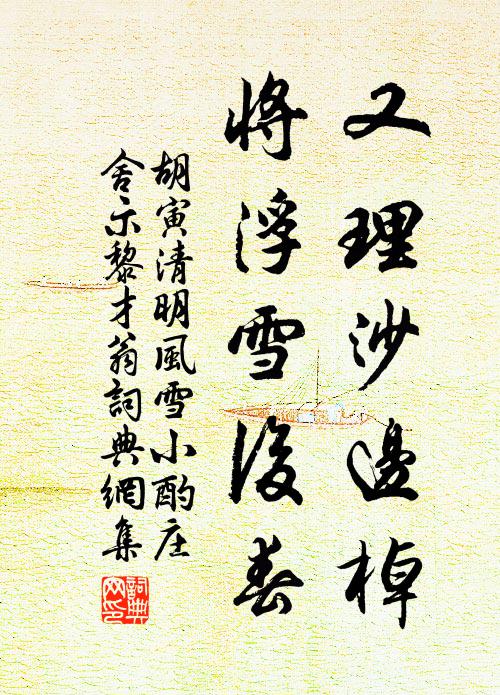 又理沙邊棹
將浮雪後春
胡寅清明風雪小酌庄
舍示黎才翁詞典網集